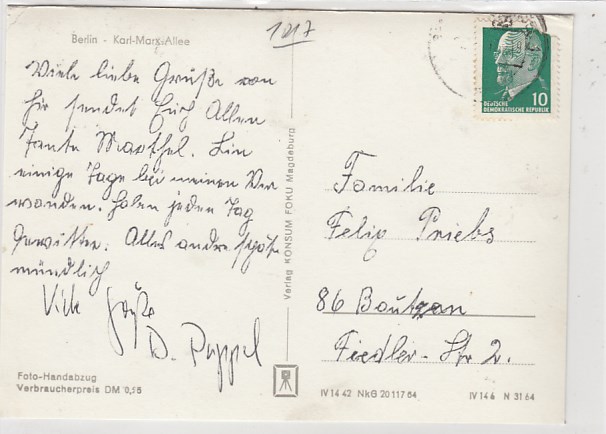 Berlin - Karl-Marx-Allee
1217
Viele liebe Grüße von
hir sendet Euch Allen
Tante Marthel. Bin
einige Tage bei meinen Ver
wanden. haben jeden Tag
Gewitter. Alles andre
mündlich
Viele Grüße
D. Puppel
Foto-Handabzug
Verbraucherpreis DM 0,15
Verlag KONSUM FOKU Magdeburg
10
DEUTSCHE
DEMOKRATISCHE REPUBLIK
Familie
Felix Priebs
86 Bautzen
Fiedler-Str 2.
IV 14 42 NkG 20 117 64 IV 14 6 N 31 64